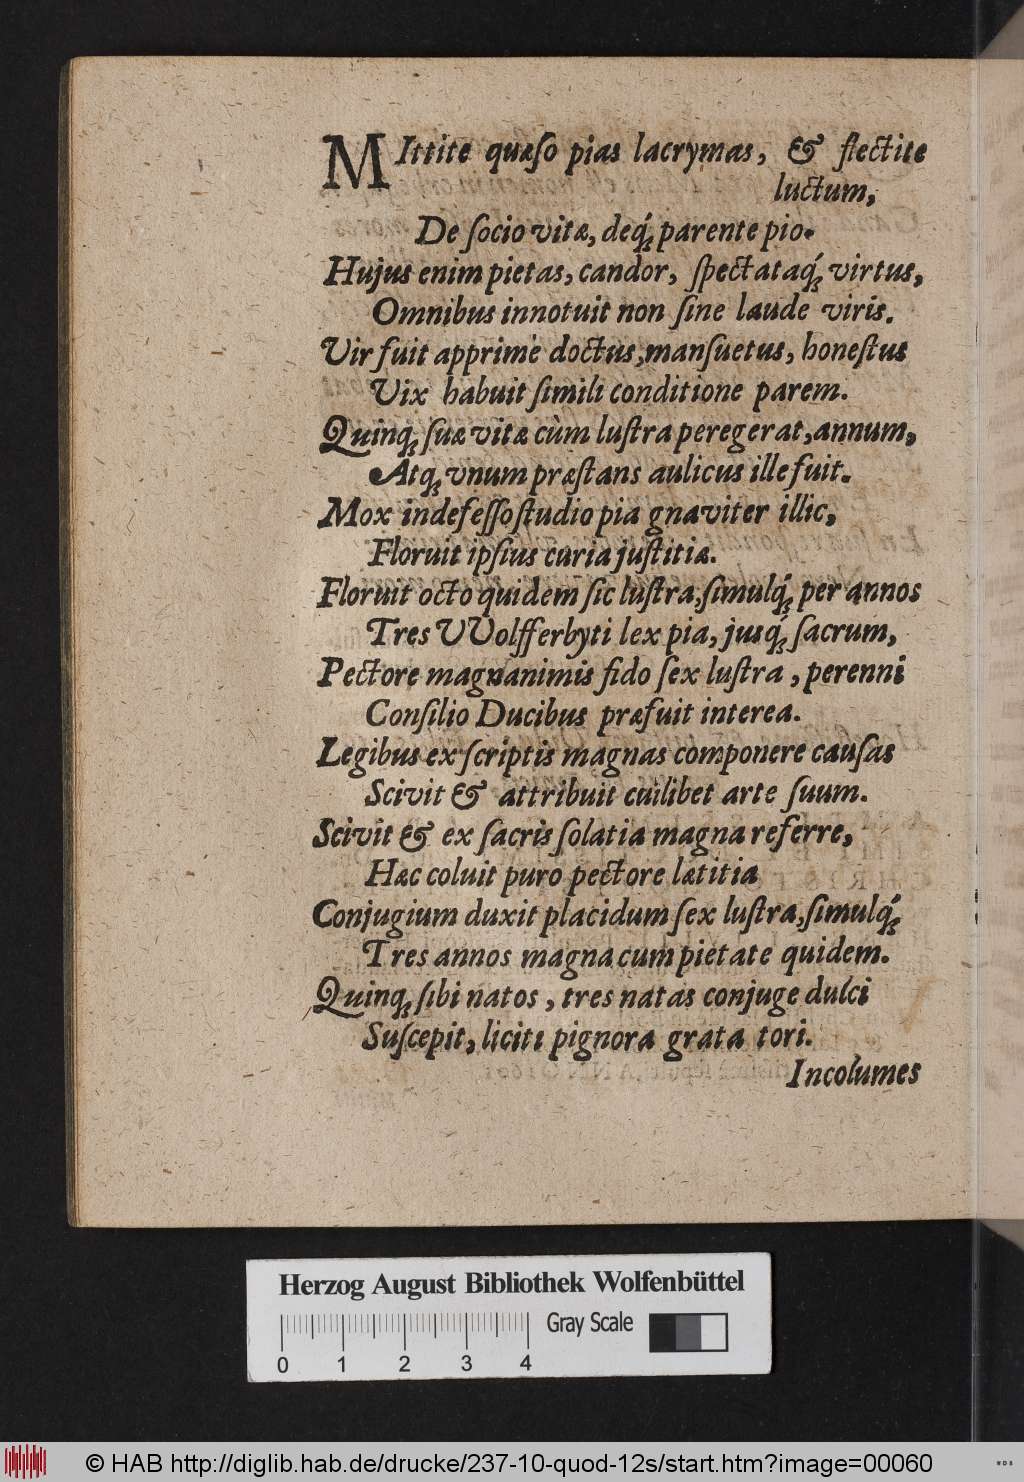 MIttite quæſo pias lacrymas, & flectite
luctum,
De ſocio vitæ, deq́; parente pio.
Hujus enim pietas, candor, ſpectataq́; virtus,
Omnibus innotuit non ſine laude viris.
Vir fuit apprimè doctus, manſuetus, honeſtus
Vix habuit ſimili conditione parem.
Quinq; ſuæ vitæ cùm luſtra peregerat, annum,
Atq; vnum præſtans aulicus ille fuit.
Mox indefeſſo ſtudio pia gnaviter illic,
Floruit ipſius curia juſtitiæ.
Floruit octo quidem ſic luſtra, ſimulq́; per annos
Tres VVolfferbyti lex pia, jusq́; ſacrum,
Pectore magnanimis fido ſex luſtra, perenni
Conſilio Ducibus præfuit interea.
Legibus ex ſcriptis magnas componere cauſas
Scivit & attribuit cuilibet arte ſuum.
Scivit & ex ſacris ſolatia magna referre,
Hæc coluit puro pectore lætitia
Conjugium duxit placidum ſex luſtra, ſimulq́;
Tres annos magna cum pietate quidem.
Quinq; ſibi natos, tres natas conjuge dulci
Suſcepit, liciti pignora grata tori.
Incolumes
Herzog August Bibliothek Wolfenbüttel
Gray Scale
0 1 2 3 4
© HAB http://diglib.hab.de/drucke/237-10-quod-12s/start.htm?image=00060